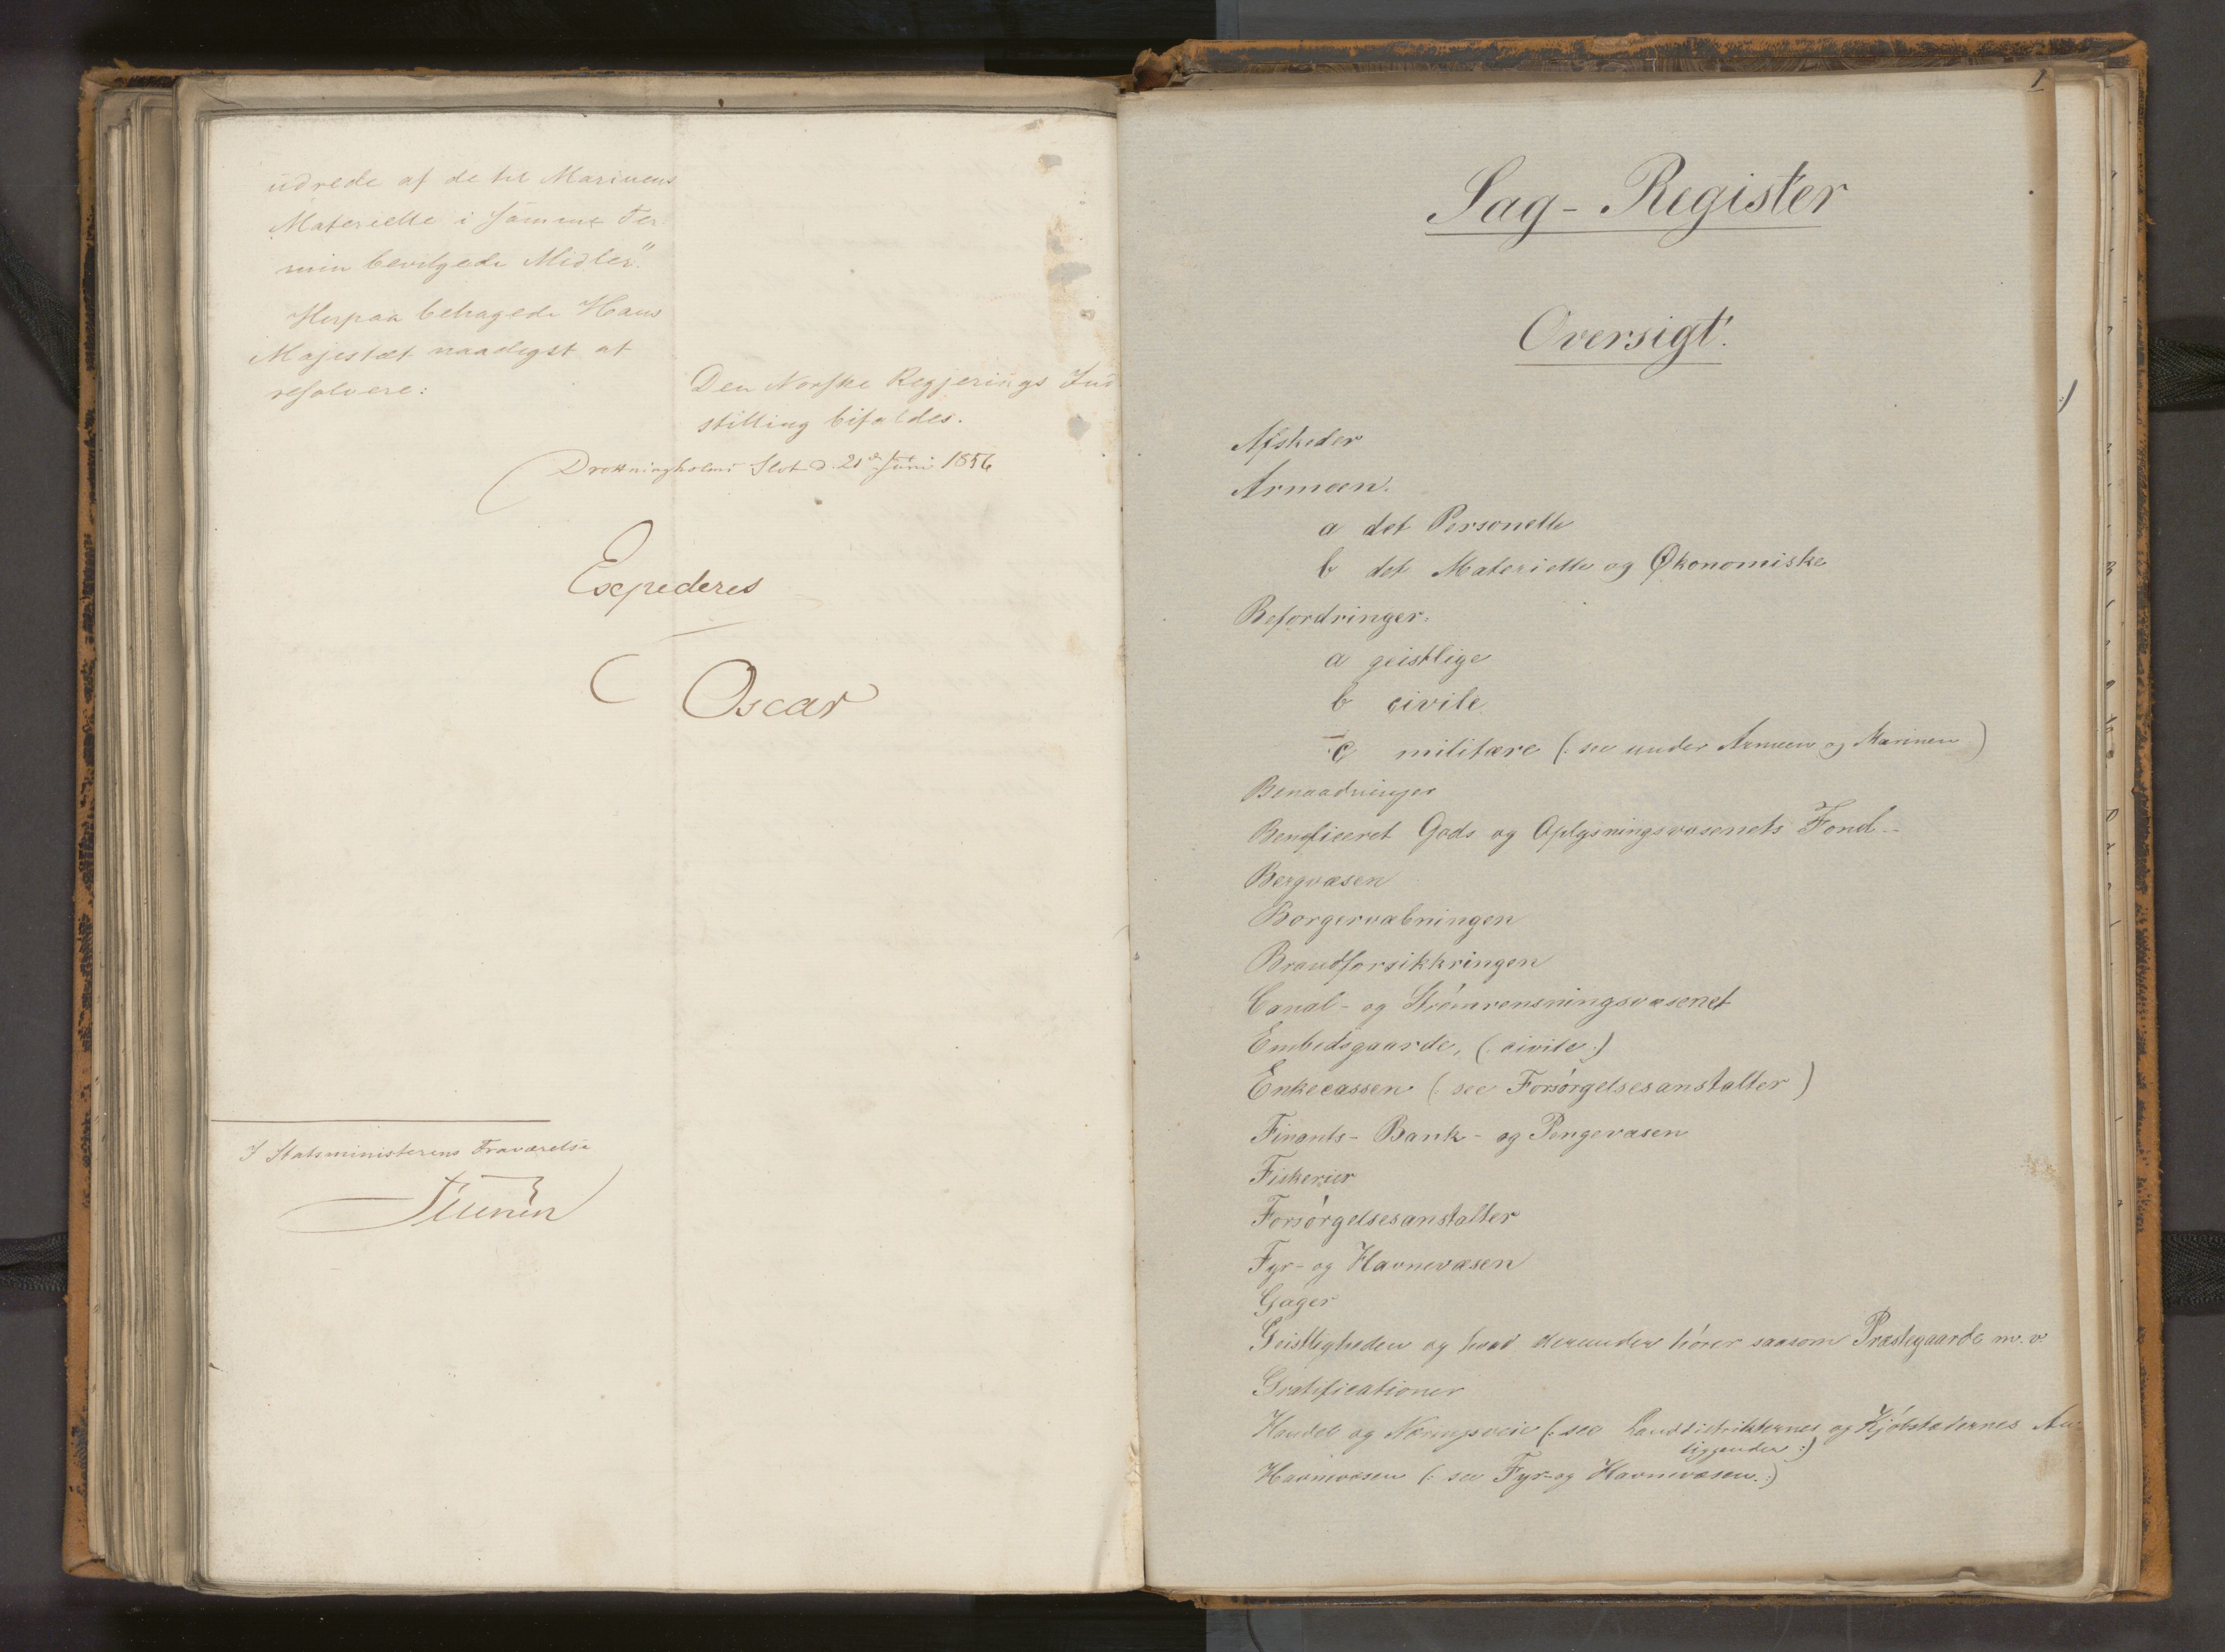 udrede af de til Marinens
Materielle i samme Ter-
min bevilgede Midler."
Herpaa behagede Hans
Majestæt naadigst at
resolvere:
Den Norske Regjerings Ind-
stilling bifaldes.
Drottningholms Slot d. 21de Juni 1856
Expederes
Oscar
I Statsministerens Fraværelse
1
Sag-Register
Oversigt.
Afskeder
Armeen.
a det Personelle
b det Materielle og Økonomiske
Befordringer.
a geistlige
b civile
c militære (: see under Armeen og Marinen)
Benaadninger
Beneficeret Gods og Oplysningsvæsenets Fond-
Bergvæsen
Borgervæbningen
Brandforsikkringen
Canal- og Strömrensningsvæsenet
Embedsgaarde, (: civile :)
Enkecassen (: see Forsörgelsesanstalter)
Finants- Bank- og Pengevæsen
Fiskerier
Forsörgelsesanstalter
Fyr- og Havnevæsen
Gager
Geistligheden og hvad derunder hörer saasom Præstegaarde m. v.
Gratificationer
Handel og Næringsveie (: see Landdistrikternes og Kjöbstædernes An-
liggender :)
Havnevæsen (: see Fyr- og Havnevæsen :)